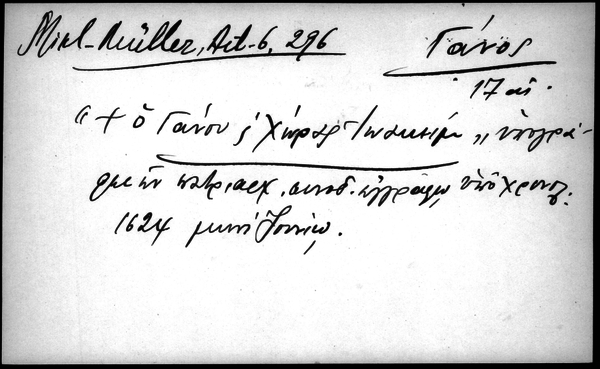 Mikl-Müller, Act-6, 296
Γάνος
17 αἰ.
"+ ὁ Γάνου ς Χώρας Ἰωακείμ" ὑπογρά-
φει ἐν πατριαρχ. συνοδ. ἐγγράφῳ ὑπὸ χρονολ:
1624 μηνὶ Ἰουνίῳ.